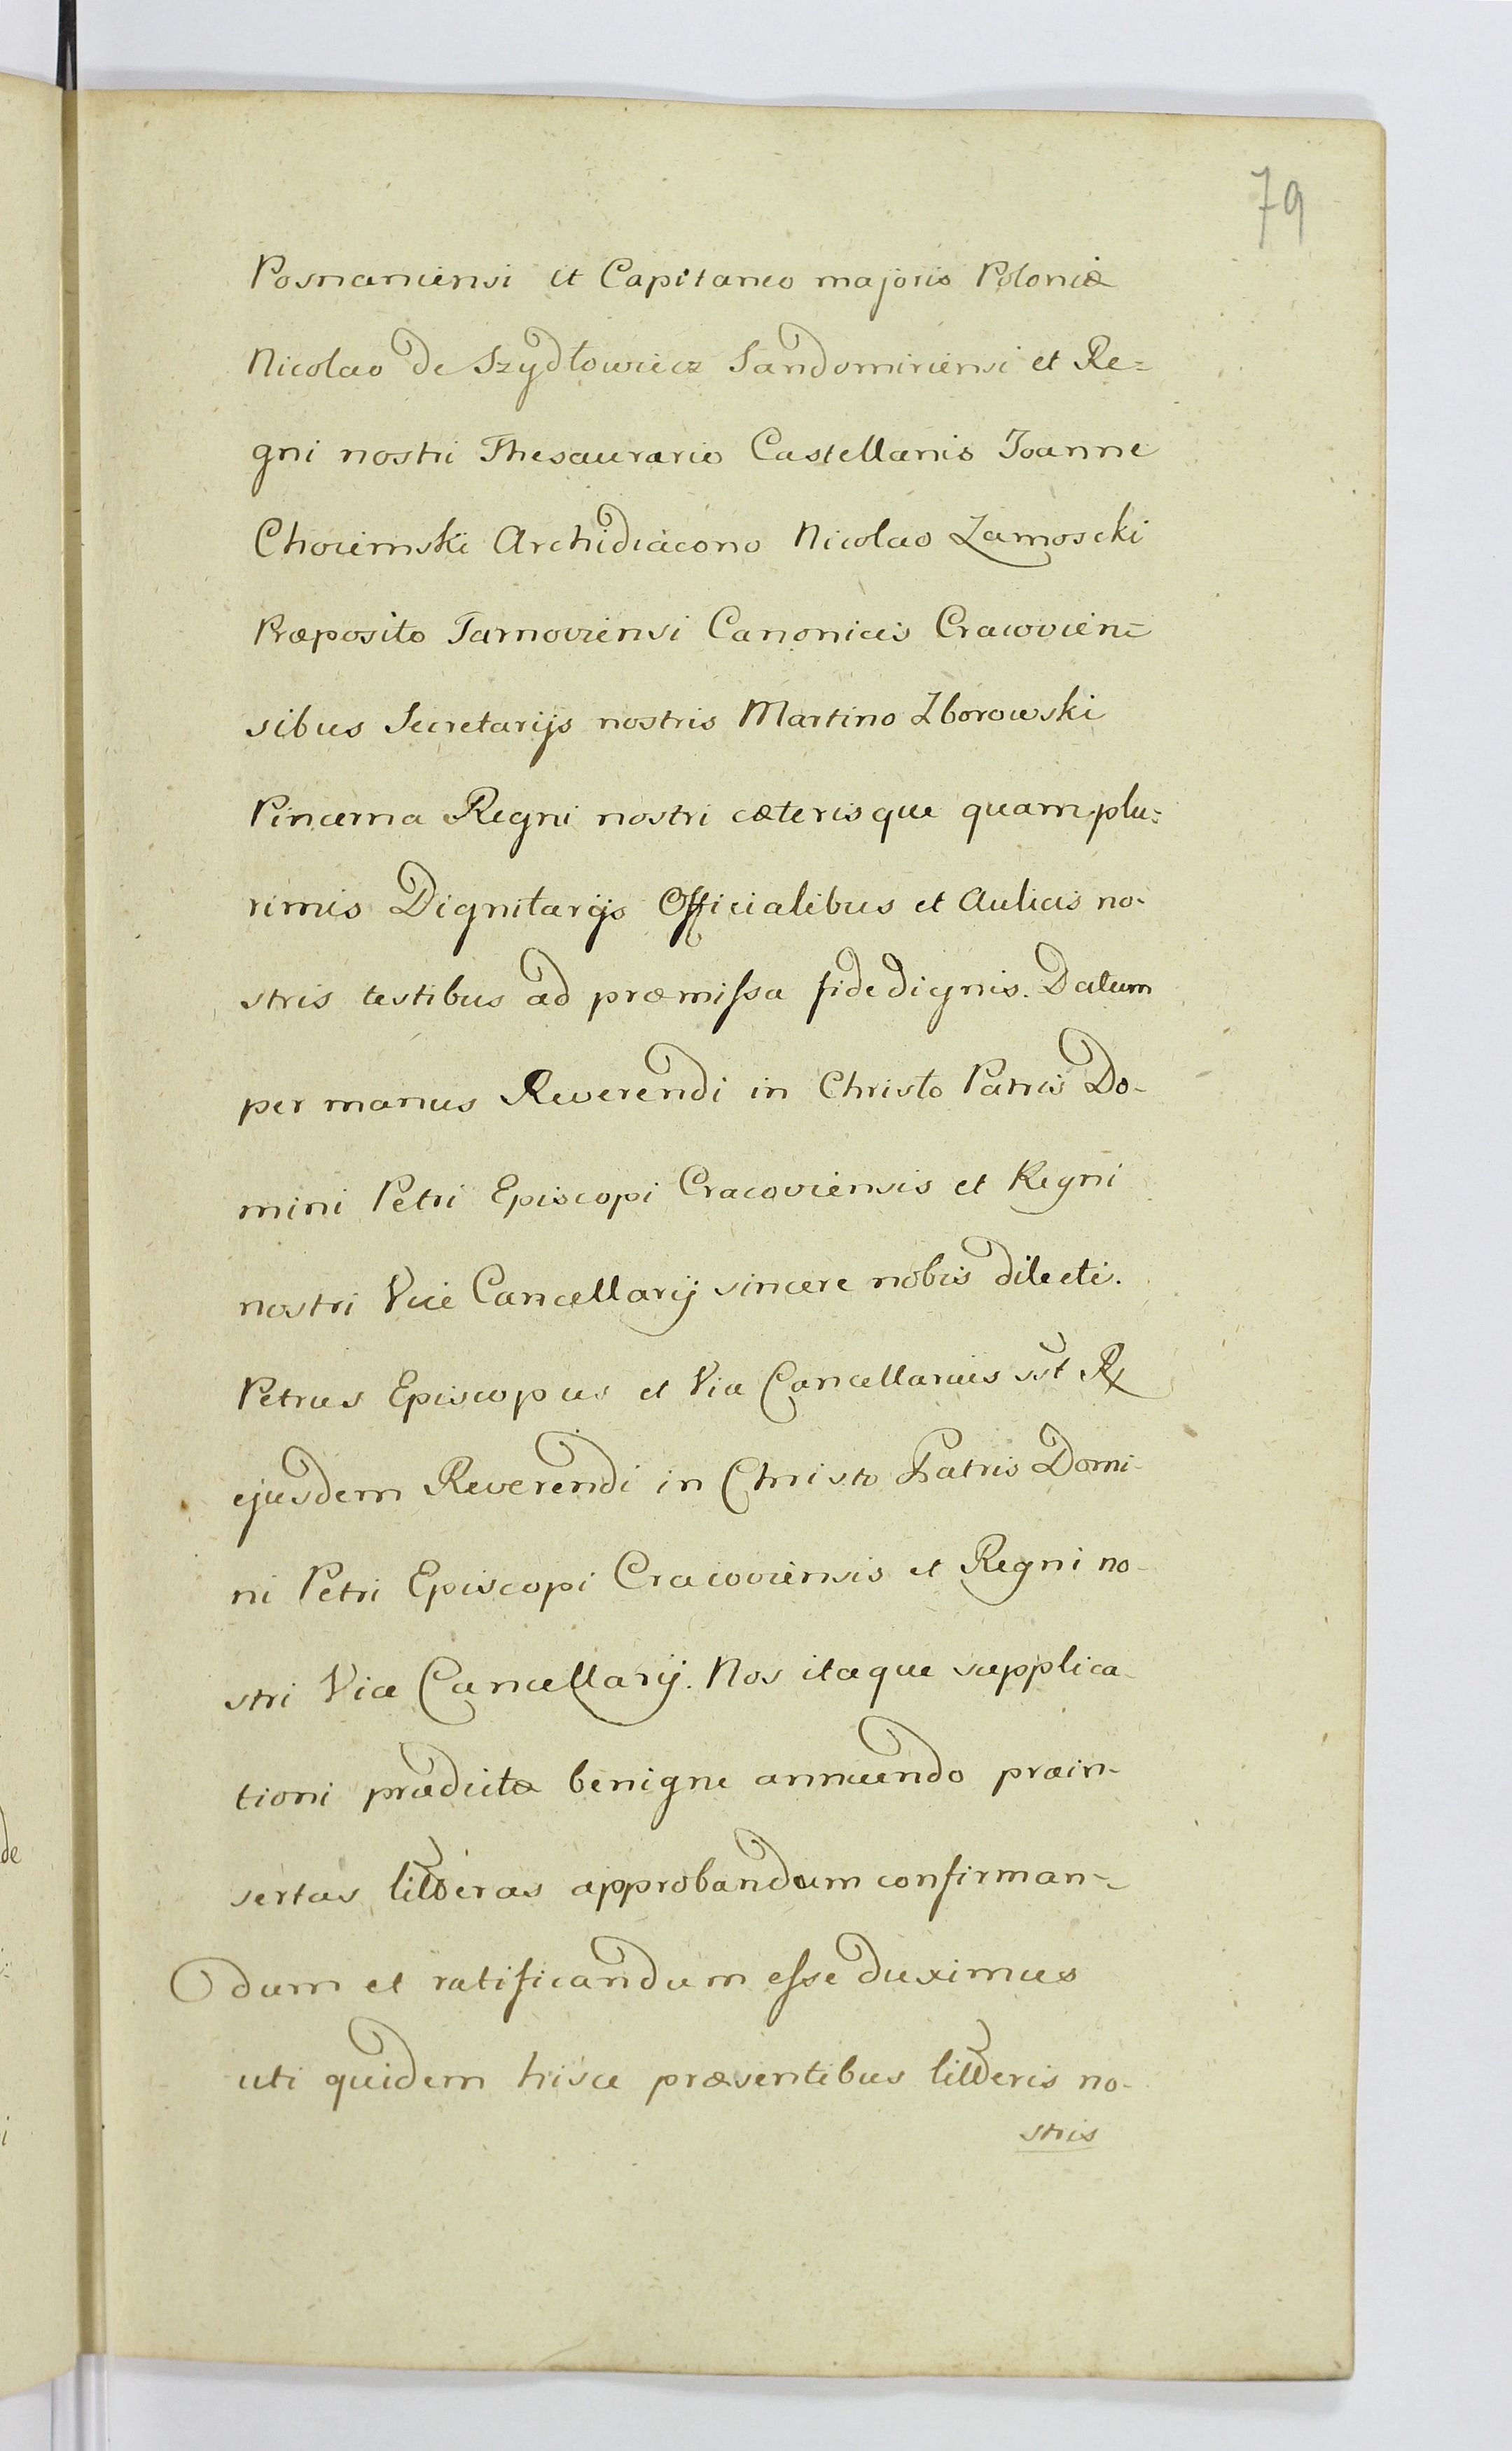 79
Posnaniensi et Capitaneo majoris Poloniæ
Nicolao de Szydłowiecz Sandomiriensi et Re=
gni nostri Thesaurario Castellanis Joanne
Choiemski Archidiacono Nicolao Zamoscki
Præposito Tarnoviensi Canonicis Cracovien=
sibus Secretarijs nostris Martino Zborowski
Pincerna Regni nostri cæterisque quamplu=
rimis Dignitarijs Officialibus et Aulicis no-
stris testibus ad præmissa fidedignis. Datum
per manus Reverendi in Christo Patris Do-
mini Petri Episcopi Cracoviensis et Regni
nostri Vice Cancellarij sincere nobis dilecti.
Petrus Episcopus et Vice Cancellarius sst
ejusdem Reverendi in Christo Patris Domi-
ni Petri Episcopi Cracoviensis et Regni no-
stri Vice Cancellarij. Nos itaque supplica-
tioni prædictæ benigne annuendo præin-
sertas litteras approbandum confirman-
dum et ratificandum esse duximus
uti quidem hisce præsentibus litteris no-
stris